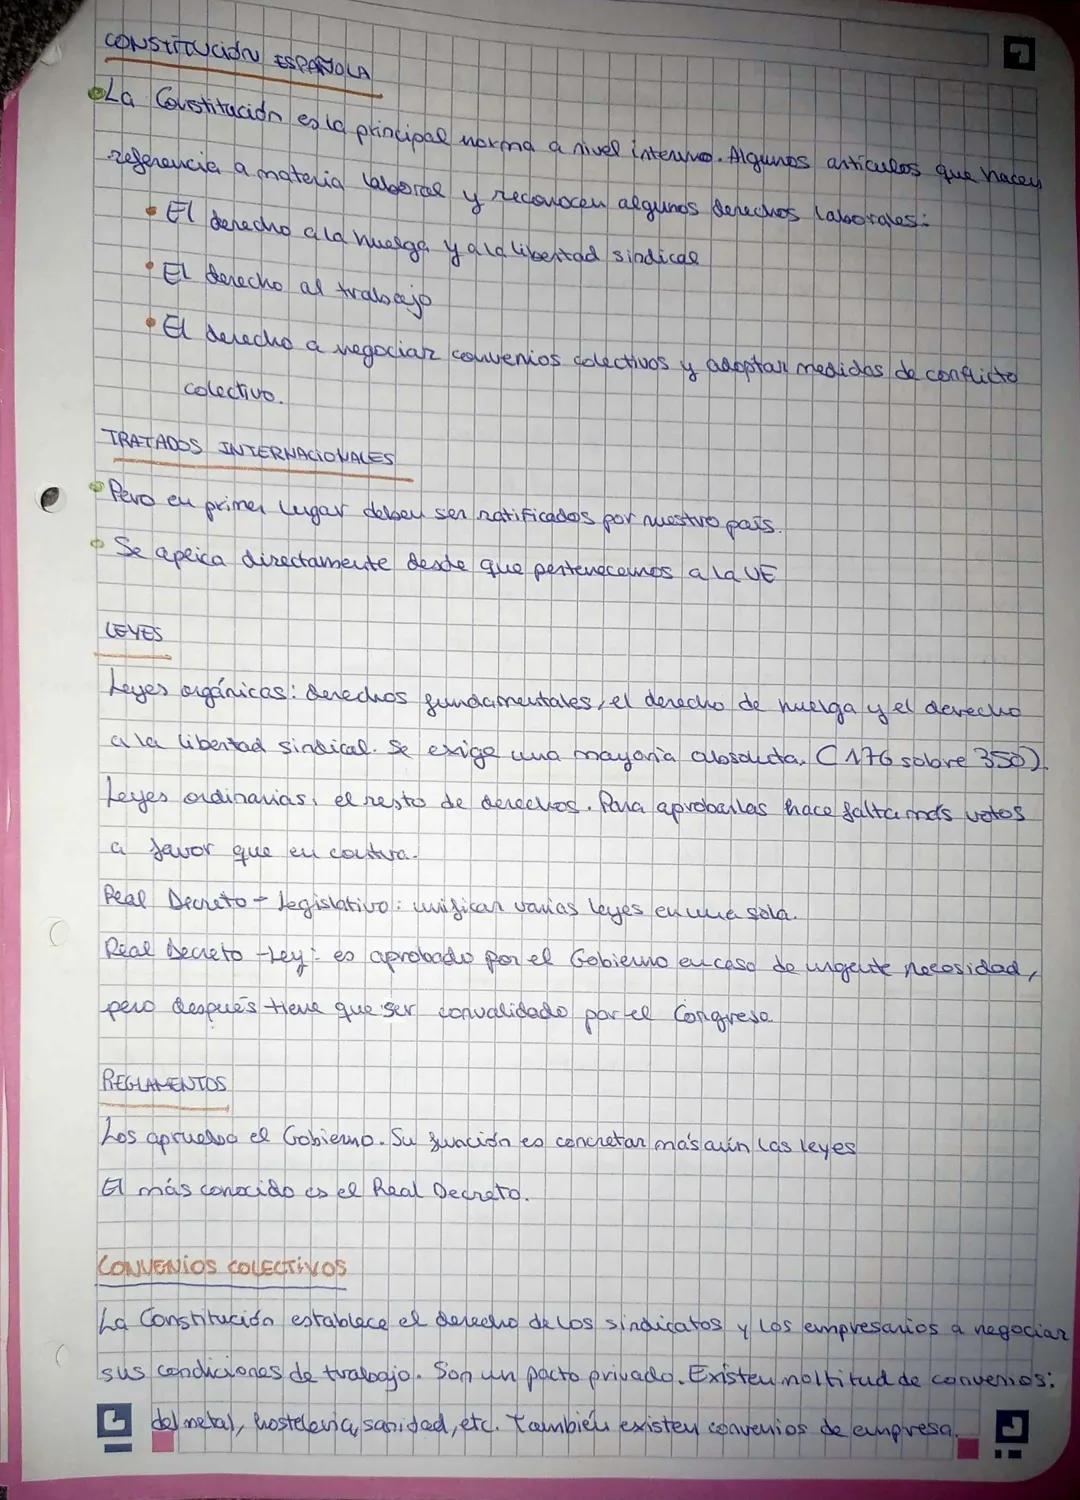 CONSTITUCIÓN ESPAÑOLA
La Constitución es la principal norma a nivel interno. Algunos artículos que hacen
referencia a materia laboral y reconocen algunos derechos laborales:
• El derecho a la huelga y a la libertad sindical
• El derecho al trabajo
• El derecho a negociar convenios colectivos y adoptar medidas de conflicto
colectivo.
TRATADOS INTERNACIONALES
Pero en primer lugar deben ser ratificados por nuestro país.
Se aplica directamente desde que pertenecemos a la UE
LEYES
Leyes orgánicas: derechos fundamentales, el derecho de huelga y el derecho
a la libertad sindical. Se exige una mayoría absoluta. (176 sobre 350).
Leyes ordinarias: el resto de derechos. Para aprobarlas hace falta más votos
a favor que en contra.
Real Decreto - Legislativo: unificar varias leyes en una sola.
Real Decreto - Ley: es aprobado por el Gobierno en caso de urgente necesidad,
pero después tiene que ser convalidado por el Congreso
REGLAMENTOS
Los aprueba el Gobierno. Su función es concretar más aún las leyes
El más conocido es el Real Decreto.
CONVENIOS COLECTIVOS
La Constitución establece el derecho de los sindicatos y los empresarios a negociar
sus condiciones de trabajo. Son un pacto privado. Existen moltitud de convenios:
del metal, hostelería, sanidad, etc. También existen convenios de empresa.